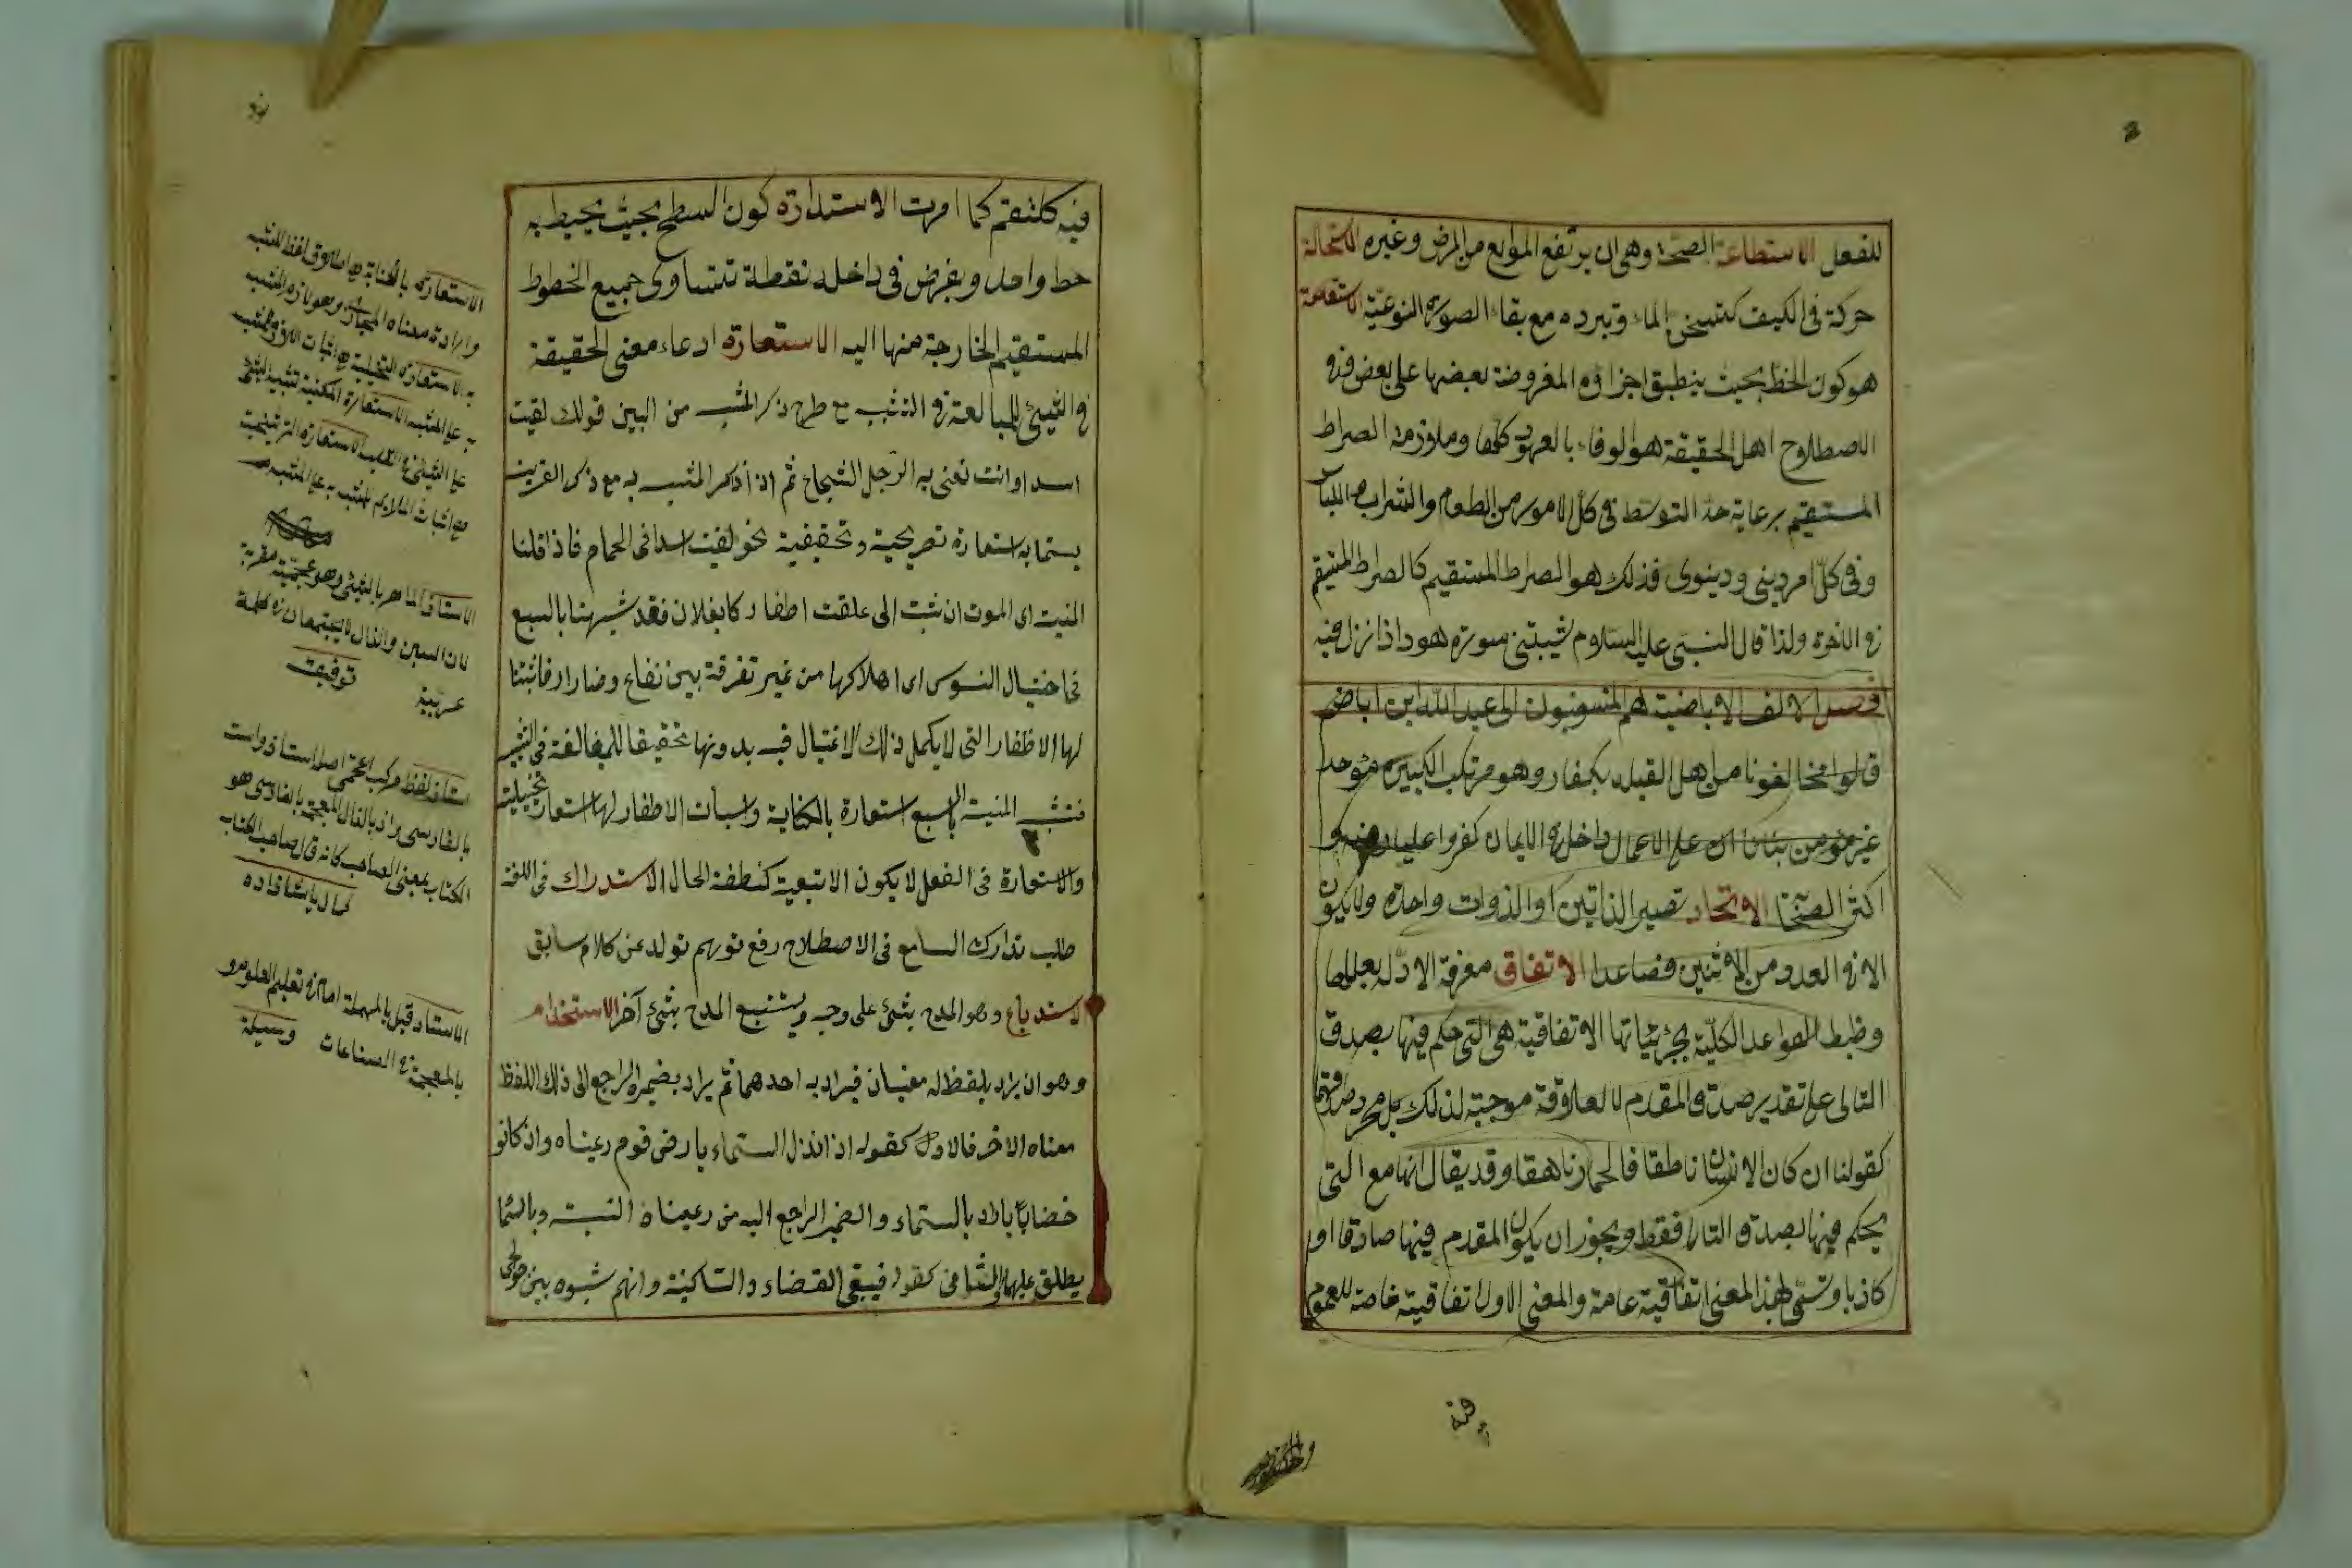 للفعل الاستطاعة الصحة وهى ان يرتفع الموانع من المرض وغيره الاستحالة
حركة فى الكيف كتسخن الماء وتبرده مع بقاء الصورة النوعية الاستقامة
هو كون الخط بحيث ينطبق اجزاؤه المفروضة بعضها على بعض فى
الاصطلاح اهل الحقيقة هو الوفاء بالعهود كلها وملازمة الصراط
المستقيم برعاية حد التوسط فى كل الامور من الطعام والشراب واللباس
وفى كل امر دينى ودنيوى فذلك هو الصراط المستقيم كالصراط المستقيم
فى الاخرة ولذا قال النبى عليه السلام شيبتنى سورة هود اذا نزل فيه
فصل الالف الاباضية هم المنسوبون الى عبد الله ابن اباض
قالوا مخالفونا من اهل القبلة كفار وهو مرتكب الكبيرة موحد
غير مؤمن بناء ان على الاعمال داخل فى الايمان كفروا عليا رضه و
اكثر الصحابة الاتحاد تصير الذاتين او الذوات واحدة ولا يكون
الا فى العدد من الاثنين فصاعدا الاتفاق معرفة الادلة بعللها
وظبط القواعد الكلية بجزئياتها الاتفاقية هى التى حكم فيها بصدق
التالى على تقدير صدق المقدم لا لعلاقة موجبة لذلك بل مجرد صدقهما
كقولنا ان كان الانسان ناطقا فالحمار ناهقا وقد يقال انها مع التى
يحكم فيها بصدق التالى فقط ويجوز ان يكون المقدم فيها صادقا او
كاذبا وتسمى بهذا المعنى اتفاقية عامة والمعنى الاول اتفاقية خاصة للعموم
فيه كلتقم كما امرت الاستدارة كون السطح بحيث يحيط به
خط واحد ويفرض فى داخله نقطة تتساوى جميع الخطوط
المستقيم الخارجة منها اليه الاستعارة ادعاء معنى الحقيقة
فى الشيئ للمبالغة فى التشبيه مع طرح ذكر المشبه من البين قولك لقيت
اسدا وانت تعنى به الرجل الشجاع ثم اذا ذكر المشبه به مع ذكر القرينة
يسما به استعارة تصريحية وتحقيقية نحو لقيت اسدا فى الحمام فاذا قلنا
المنية اى الموت انشبت الى علقت اظفارها بفلان فقد شبهنا بالسبع
فى اختيال النفوس اى اهلاكها من غير تفرقة بين نفاع وضرار فاثبتنا
لها الاظفار التى لا يكمل ذلك الاغتيال فيه بدونها تحقيقا للمبالغة فى التشبيه
فتشبيه المنية بالسبع استعارة بالكناية واسبات الاظفار لها استعارة تخييلية
والاستعارة فى الفعل لا يكون الا تبعية كنطقة الحال الاستدراك فى اللغة
طلب تدارك السامع فى الاصطلاح رفع توهم تولد عن كلام سابق
لاستدباع وهو المدح بشئ على وجه يستتبع المدح بشئ آخر الاستخدام
وهو ان يراد بلفظ له معنيان فيراد به احدهما ثم يراد بضميره الراجع الى ذلك اللفظ
معناه الاخر فالاول كقوله اذا نزل السماء بارض قوم رعيناه وان كانو
غضابا باراد بالسماء والضمير الراجع اليه من رعيناه النبت وبالسما
يطلق عليهما والثانى كقوله فسقى الغضاء والساكنيه وانهم شبوه بين
الاستعارة بالكناية هو اطلاق لفظ المشبه
وارادة معناه المجازى وهو لازم المشبه
به الاستعارة التخييلية هو اثبات اللازم المشبه
به على المشبه الاستعارة المكنية تشبيه الشئ
على الشيئ فى القلب الاستعارة الترشيحية
مع اثبات الملايم المشبه به على المشبه
الاستاذ الماهر بالشئ وهو عجمية معربة
لان السين والذال لا يجتمعان فى كلمة
عربية توفيقى
استاذ لفظ مركب عجمى اصله استا ذو است
بالفارسى واذ بالذال المعجمة بالفارسى هو
الكتاب بمعنى الصاحب كانه قال صاحب الكتاب
كمال پاشا زاده
الاستاد قيل بالمهملة امام فى تعليم العلوم و
بالمعجمة فى الصناعات وسيلة